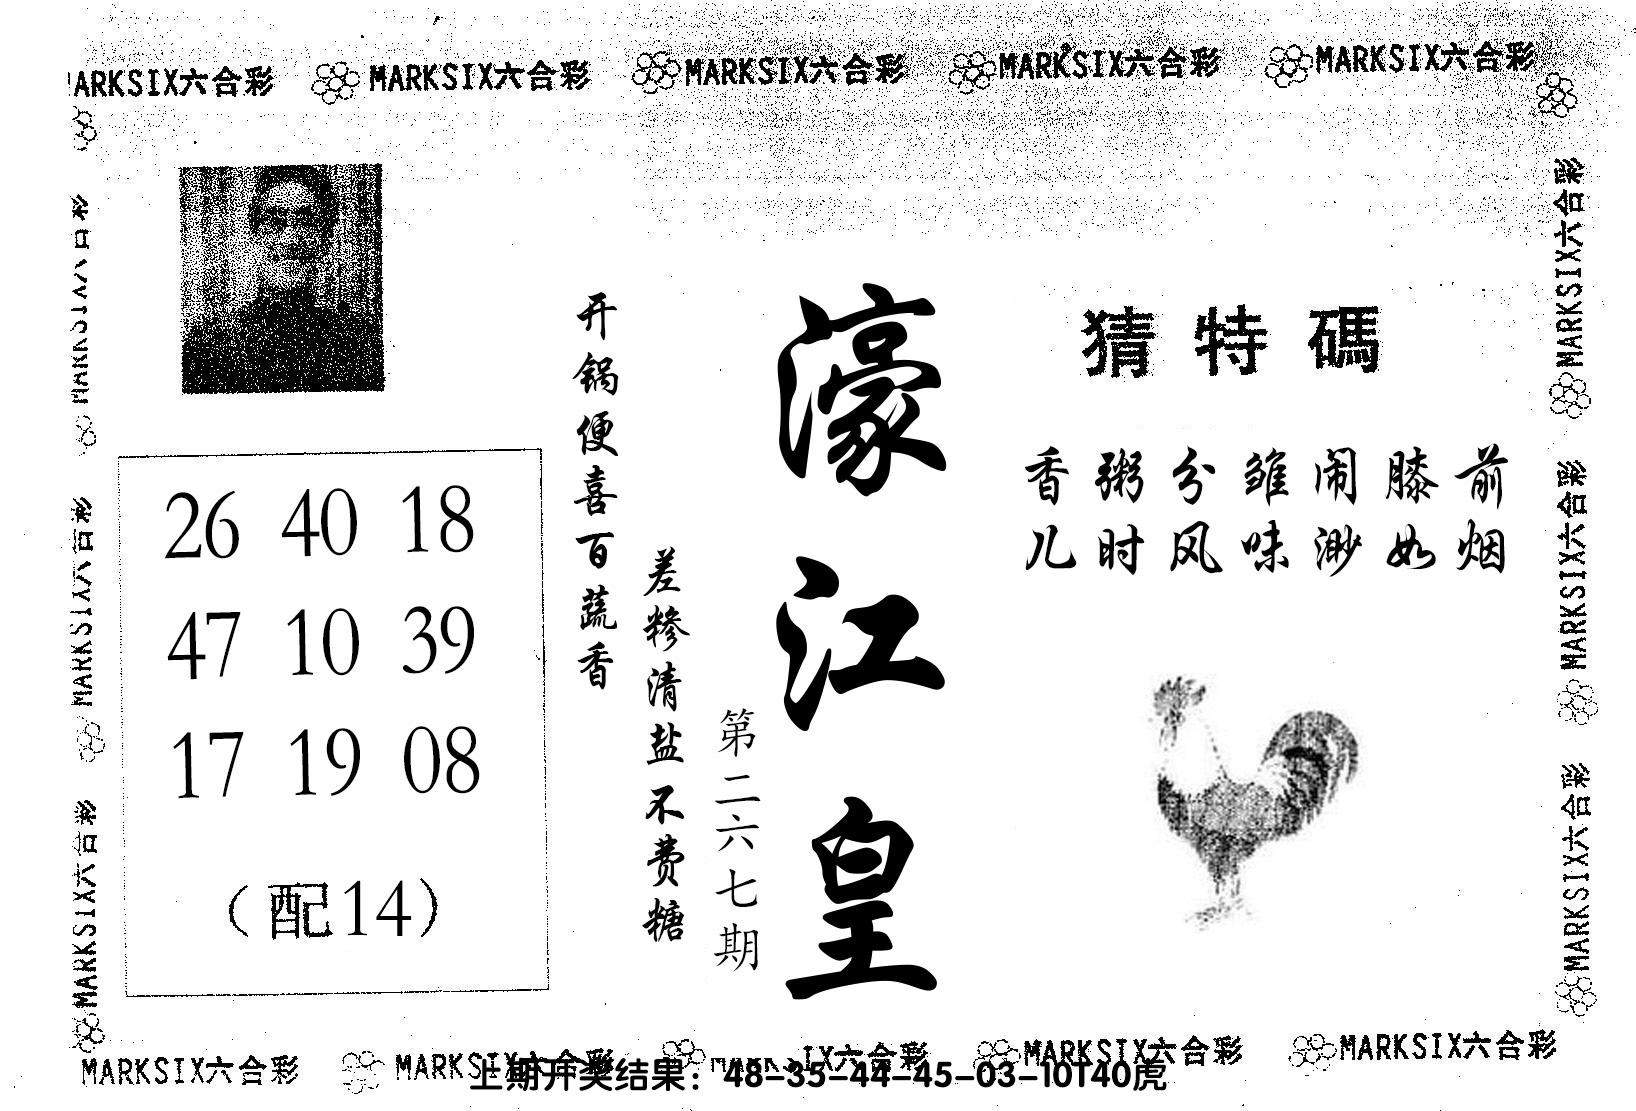 MARKSIX六合彩 MARKSIX六合彩 MARKSIX六合彩 MARKSIX六合彩
猜特碼
香粥分雏闹膝前
儿时风味渺如烟
濠江皇
第二六七期
开锅便喜百蔬香
差糁清盐不费糖
26 40 18
47 10 39
17 19 08
(配14)
MARKSIX六合彩
MARKSIX六合彩
MARKSIX六合彩
MARKSIX六合彩
MARKSIX六合彩
MARKSIX六合彩 MARKSIX六合彩 MARKSIX六合彩
上期开奖结果：48-35-44-45-03-10T40虎